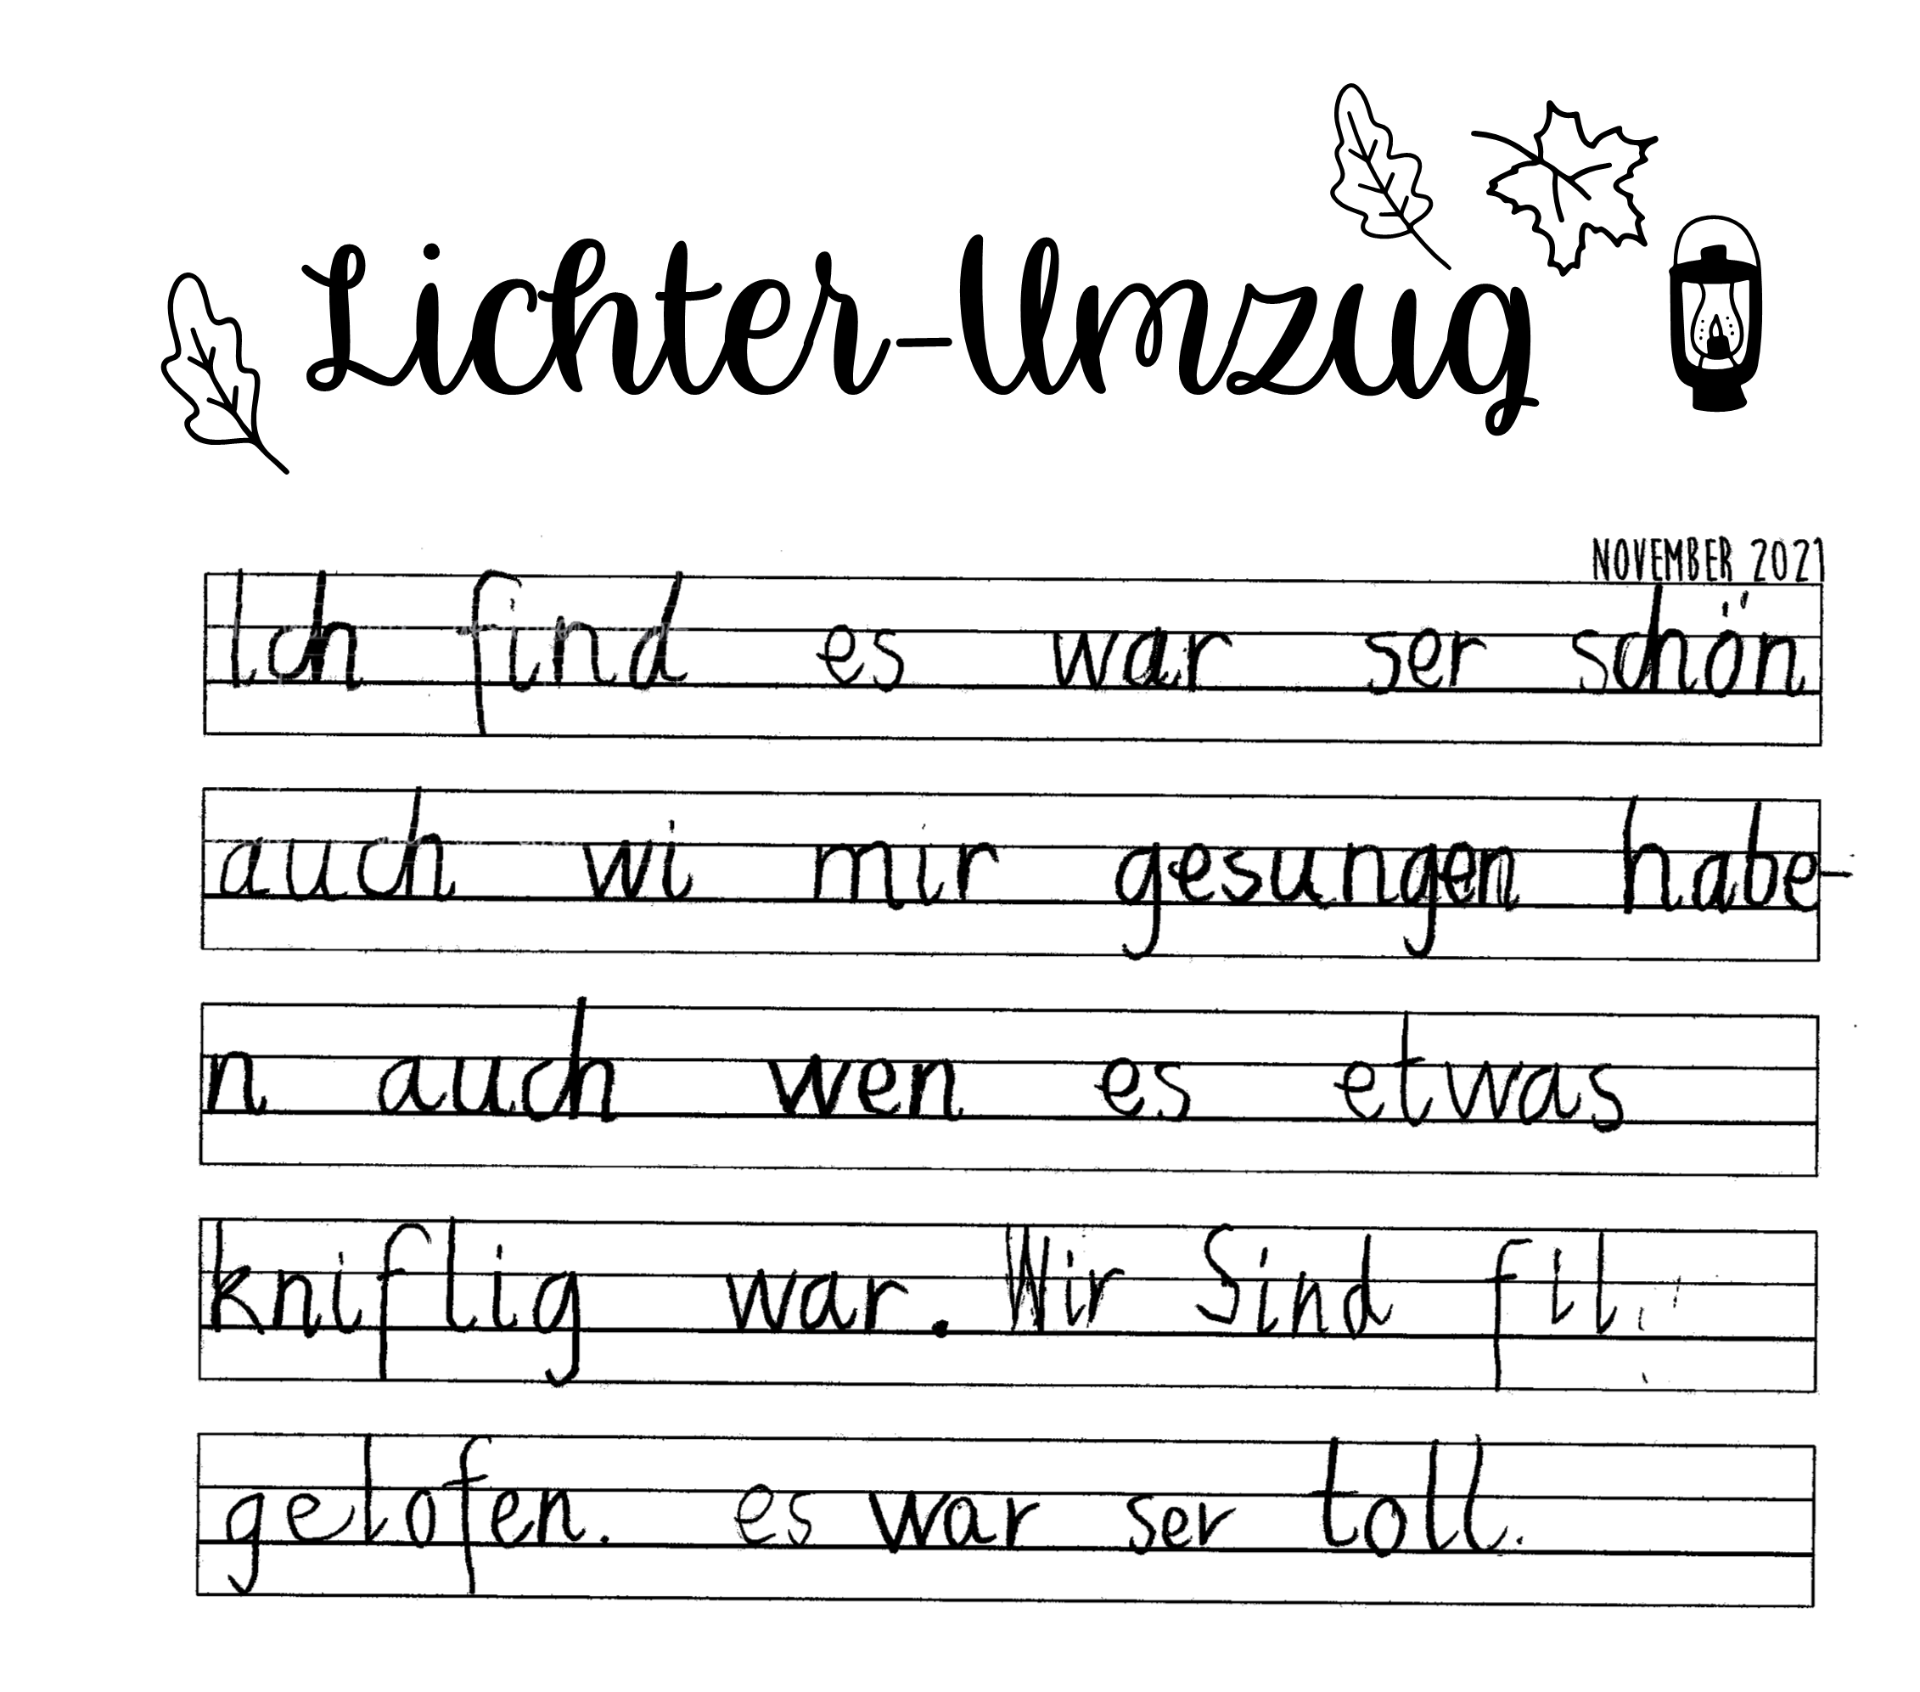 Lichter-Umzug
NOVEMBER 2021
Ich find es war ser schön
auch wi mir gesungen habe-
n auch wen es etwas
kniflig war. Wir Sind fil
gelofen. es war ser toll.